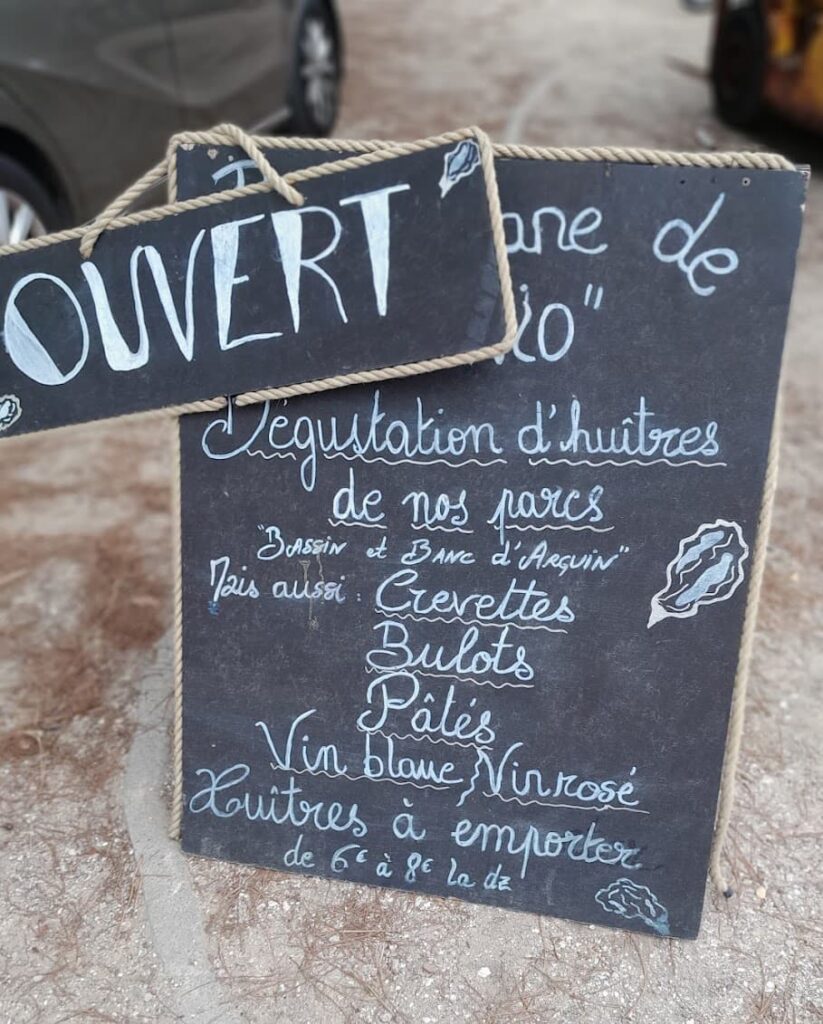 OUVERT
de
Dégustation d'huîtres
de nos parcs
"Bassin et Banc d'Arguin"
Mais aussi : Crevettes
Bulots
Pâtés
Vin blanc, Vin rosé
Huîtres à emporter
de 6€ à 8€ la dz